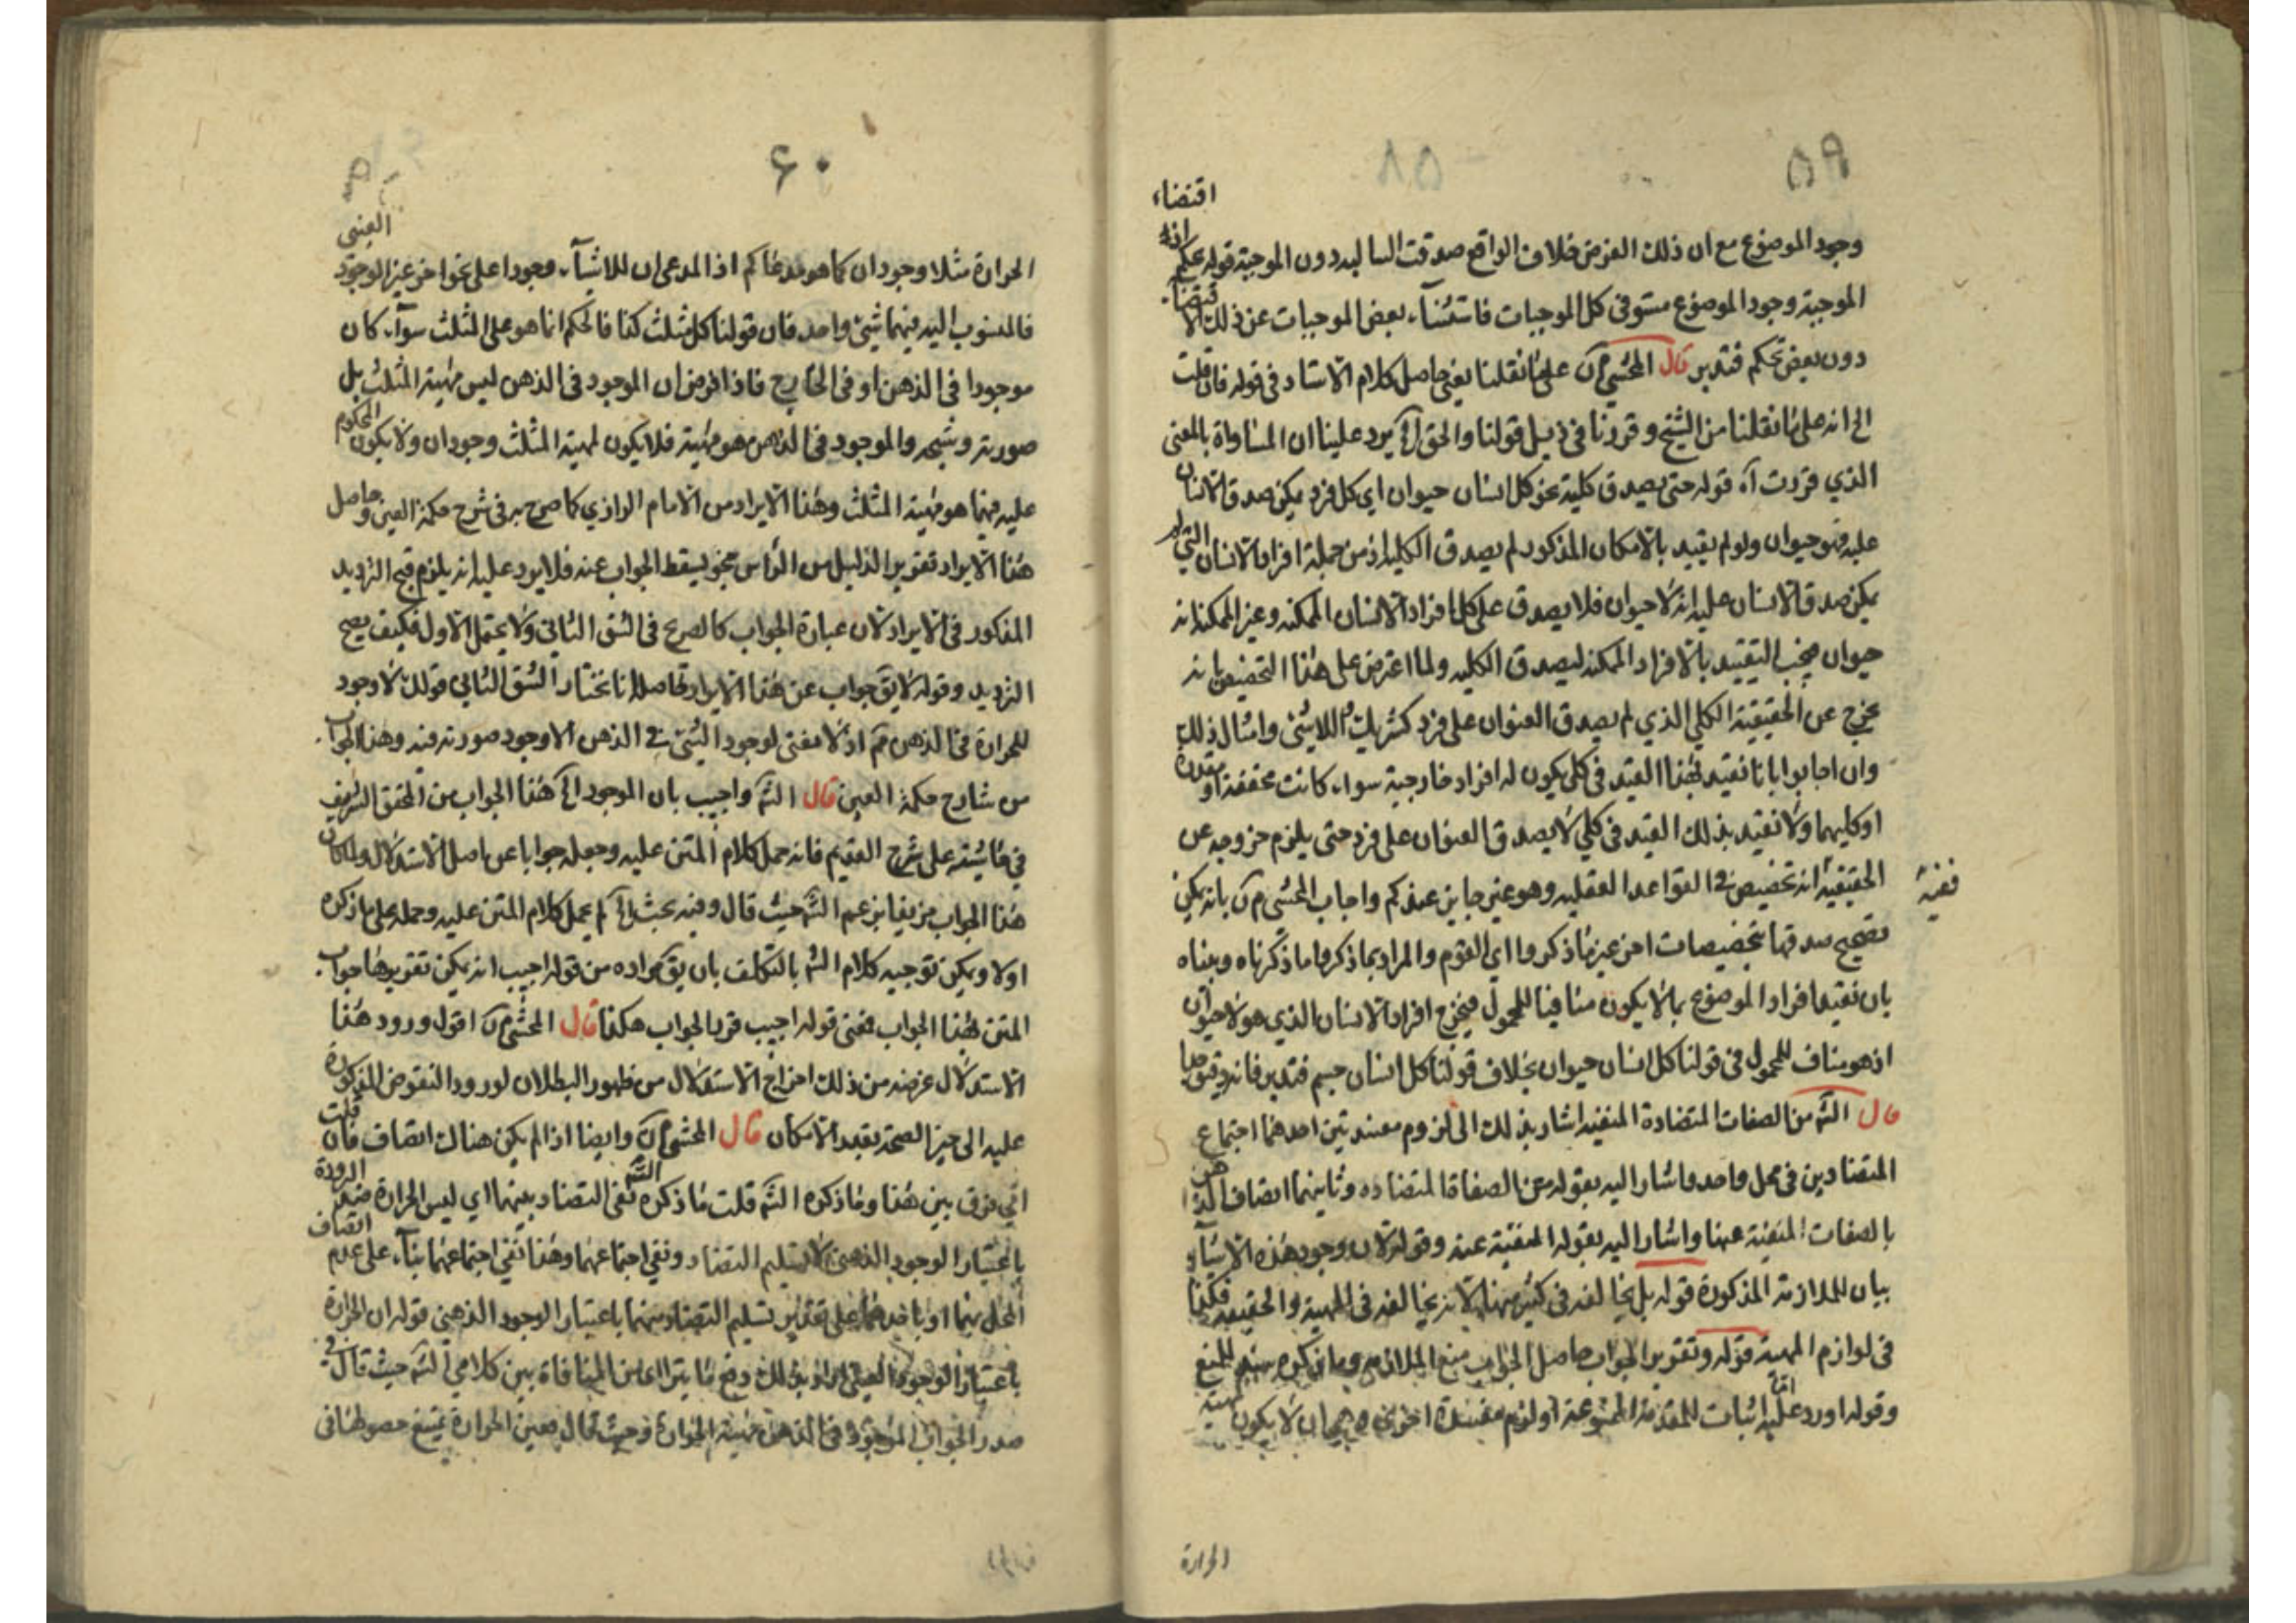 ٥٩
اقتضاء
وجود الموضوع مع ان ذلك الفرض خلاف الواقع صدقت السالبه دون الموجبة قوله عكم اذ
الموجبة وجود الموضوع مستو فى كل الموجبات فاستثنآء بعض الموجبات عن ذلك الاقتضاء
دون بعض تحكم فتدبر قال المحشى م ن على ما نقلنا يعنى حاصل كلام الاستاد فى قوله فان قلت
الخ انه على ما نقلنا من الشيخ وقررنا فى ذيل قولنا والحق يرد علينا ان المساواة بالمعنى
الذي قررت آه قوله حتى يصدق كلية نحو كل انسان حيوان اي كل فرد يمكن صدق الانسان
عليه فهو حيوان ولو لم يقيد بالامكان المذكور لم يصدق الكليه اذ من جملة افراد الانسان التى
يمكن صدق الانسان عليه انه لا حيوان فلا يصدق على كل افراد الانسان الممكنه وغير الممكنه انه
حيوان فيجب التقييد بالافراد الممكنه ليصدق الكليه ولما اعترض على هذا التخصيص بانه
يخرج عن الحقيقية الكلي الذي لم يصدق العنوان على فرد كشريك واللاشئ وامثال ذلك
وان اجابوا بانا نقيد بهذا القيد فى كلى يكون له افراد خارجية سواء كانت محققة او مقدرة
او كليهما ولا نقيد بذلك القيد فى كلي لا يصدق العنوان على فرد حتى يلزم خروجه عن
الحقيقية ففيه انه تخصيص فى القواعد العقليه وهو غير جايز عندكم واجاب المحشى م ن بانه يمكن
تصحيح صدقها بتخصيصات اخر غير ما ذكروا اي القوم والمراد بما ذكروا ما ذكرناه وبيناه
بان نقيد افراد الموضوع بما لا يكون منافيا للمحمول فيخرج افراد الانسان الذي هو لا حيوان
اذ هو مناف للمحمول فى قولنا كل انسان حيوان بخلاف قولنا كل انسان جسم فتدبر فانه دقيق جدا
قال الشه من الصفات المتضادة المنفيه اشار بذلك الى لزوم مفسدتين احدهما اجتماع
المتضادين فى محل واحد واشار اليه بقوله من الصفاة المتضاده وثانيهما اتصاف الذهن
بالصفات المنفية عنها واشار اليه بقوله المنفية عنه وقوله لان وجود هذه الاشيآء
بيان للملازمة المذكورة قوله بل يخالفه فى كثير منها لانه يخالفه فى المهية والحقيقه فكذا
فى لوازم المهية قوله وتقرير الجواب حاصل الجواب منع الملازمه وما ذكره سند للمنع
وقوله اورد عليه اثبات للمقدمة الممنوعة او لزوم مفسدة اخرى وهي ان لا يكون لمهية
الحرارة
٦٠
الحرارة مثلا وجودان كما هو مدعاكم اذ المدعى ان للاشيآء وجودا على نحو اخر غير الوجود العينى
فالمنسوب اليه فيهما شئ واحد فان قولنا كل مثلث كذا فالحكم انما هو على المثلث سوآء كان
موجودا فى الذهن او فى الخارج فاذا فرض ان الموجود فى الذهن ليس مهية المثلث بل
صورته وشبحه والموجود فى الذهن هو مهية فلا يكون لمهية المثلث وجودان ولا يكون المحكوم
عليه فيهما هو مهية المثلث وهذا الايراد من الامام الرازي كما صرح به فى شرح حكمة العين وحاصل
هذا الايراد تقرير الدليل من الرأس بنحو ليسقط الجواب عنه فلا يرد عليه انه يلزم قبح الترديد
المذكور فى الايراد لان عبارة الجواب كالصرح فى الشق الثانى ولا يحتمل الاول فكيف يصح
الترديد وقوله لا يق جواب عن هذا الايراد حاصله انا نختار الشق الثانى قولك لا وجود
للحرارة فى الذهن قم اذ لا معنى لوجود الشئ فى الذهن الا وجود صورته فيه وهذا الجواب
من شارح حكمة العين قال الشه واجيب بان الموجود هذا الجواب من المحقق الشريف
فى حاشيته على شرح القديم فانه حمل كلام المتن عليه وجعله جوابا عن اصل الاستدلال ولما كان
هذا الجواب مزيفا بزعم الشه حيث قال وفيه بحث لم يحمل كلام المتن عليه وحمله على ما ذكره
اولا ويمكن توجيه كلام الشه بالتكلف بان يق مراده من قوله اجيب انه يمكن تقرير جواب
المتن بهذا الجواب فمعنى قوله اجيب قرر الجواب هكذا قال المحشى م ن اقول ورود هذا
الاستدلال غرضه من ذلك اخراج الاستدلال من ظهور البطلان لورود النقوض المذكورة
عليه الى حيز الصحة بقدر الامكان قال المحشى م ن وايضا اذا لم يكن هناك اتصاف فان قلت
اي فرق بين هذا وما ذكره الشه قلت ما ذكره الشه نفى التضاد بينهما اي ليس الحرارة ضد البرودة
باعتبار الوجود الذهنى لا تسليم التضاد ونفي اجتماعهما وهذا نفي اجتماعهما بنآء على عدم اتصاف
المحل بهما او باحدهما على تقدير تسليم التضاد بينهما باعتبار الوجود الذهني قوله ان الحرارة
باعتبار الوجود العينى دفع ما يترااى من المنافاة بين كلامي الشه حيث قال فى
صدر الجواب الموجود فى الذهن مهية الحرارة وحيث قال فعين الحرارة يمتنع حصولها فى